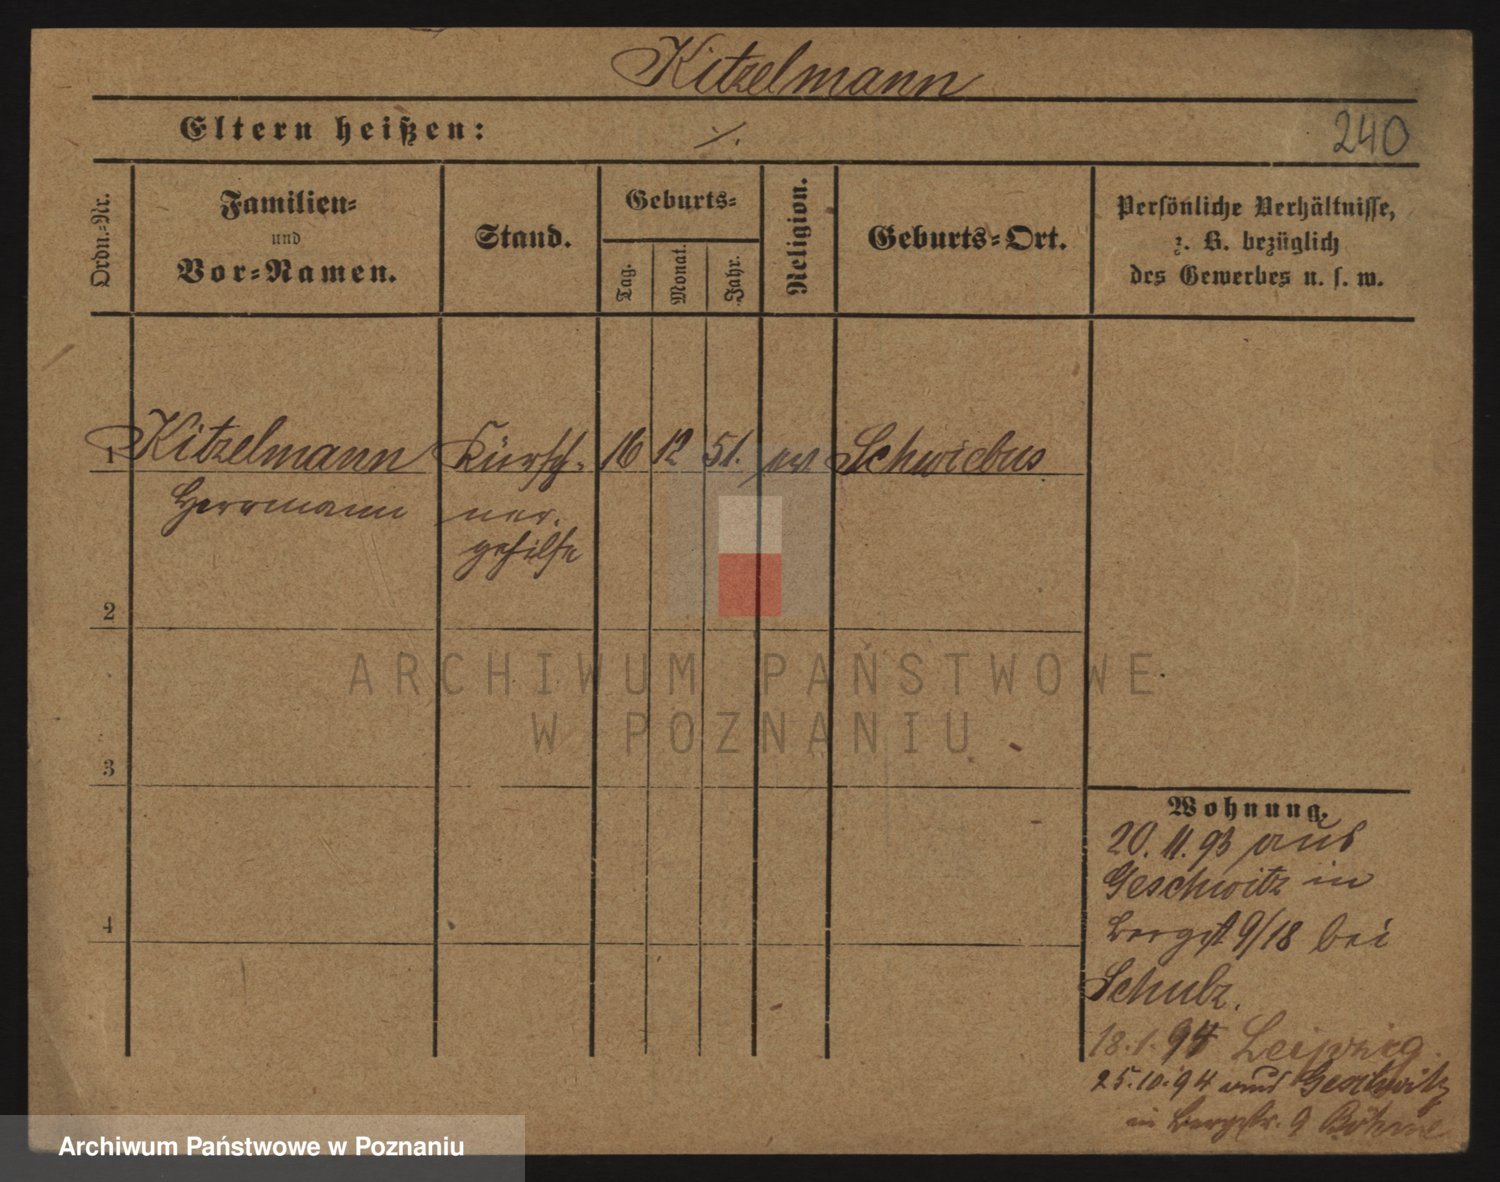 Kitzelmann
Eltern heißen: ./.
240
Ordn.-Nr.
Familien-
und
Vor-Namen.
Stand.
Geburts-
Tag.
Monat.
Jahr.
Religion.
Geburts-Ort.
Persönliche Verhältnisse,
z. B. bezüglich
des Gewerbes u. s. w.
1 Kitzelmann Kürsch- 16 12 51. ev Schwiebus
Herrmann ner.
gehilfe
2
ARCHIWUM PAŃSTWOWE
W POZNANIU
3
Wohnung.
20. 11. 93 aus
Geschwitz in
4
Bergst 9/18 bei
Schulz.
18.1.94 Leipzig.
25.10.94 aus Geschwitz
in Bergstr. 9 Böhme
Archiwum Państwowe w Poznaniu